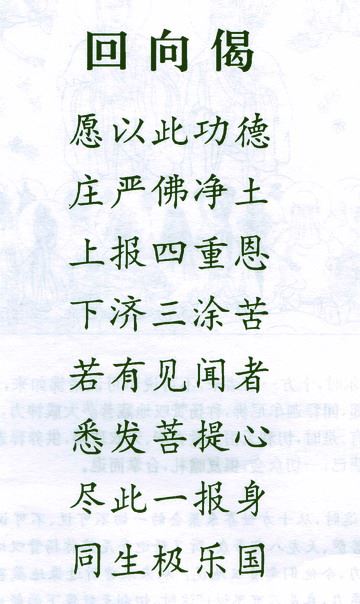 回向偈
愿以此功德
庄严佛净土
上报四重恩
下济三涂苦
若有见闻者
悉发菩提心
尽此一报身
同生极乐国